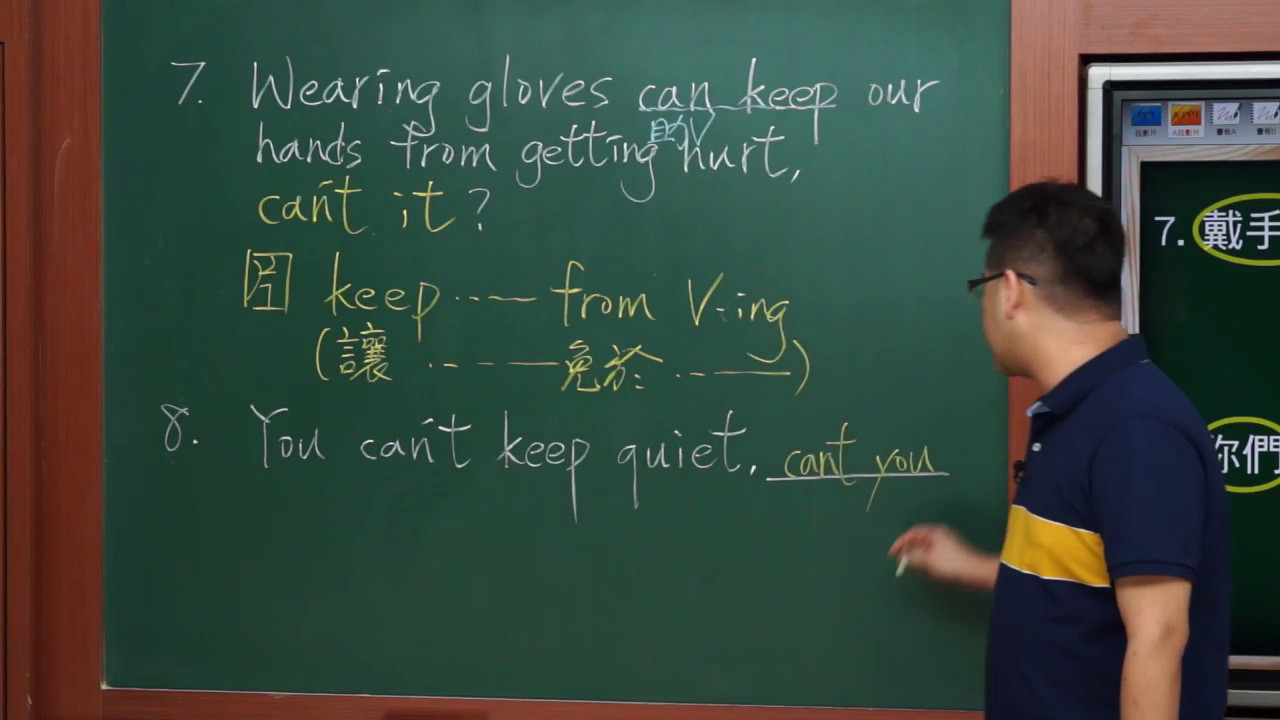 7. Wearing gloves can keep our
助V
hands from getting hurt,
can't it?
keep ...... from V-ing
(讓 ...... 免於 ......)
8. You can't keep quiet, cant you
7. 戴手
你們